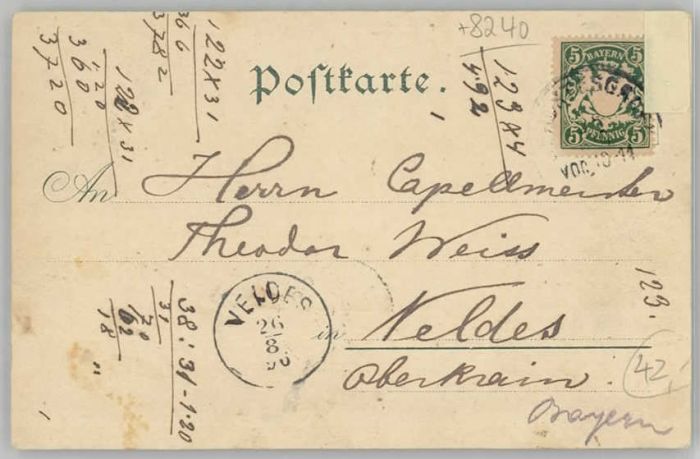 +8240
Postkarte.
5 BAYERN 5
5 PFENNIG 5
VOR. 10-11
An Herrn Capellmeister
Theodor Weiss
in Veldes
Oberkrain.
Bayern
VELDES
26
8
123.
42
122 x 31
366
3782
122 x 31
120
360
3720
123 x 4
492
38 : 31 - 1.20
31
70
62
18 "